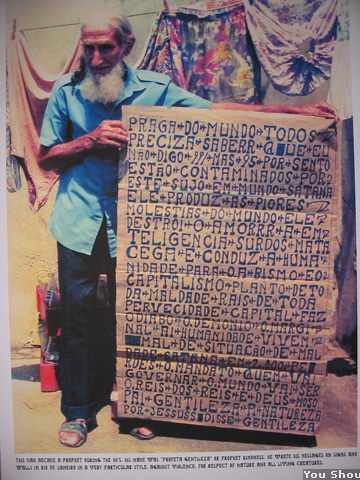 PRAGA DO MUNDO TODOS
PRECIZA SABERR Q DE EU
NÃO DIGO 99 MAS 95 POR SENTO
ESTÃO CONTAMINADOS POR
ESTE SUJO EM MUNDO SATANA
ELE PRODUZ AS PIORES
MOLESTIAS DO MUNDO ELE
DESTRÓI O AMORRR A EM
TELIGENCIA SURDOS MATA
CEGA E CONDUZ A HUMA
NIDADE PARA O ABISMO E O
CAPITALISMO PLANTO DE TO
DA MALDADE RAIS DE TODA
PERVECIDADE CAPITAL FAZ
DIABO DEMONIO MARGI
NAL A HUMANIDADE VIVEM
MAL DE SITUAÇÃO DE MAL
DADE SATANA EM
RUDOS O MANDATO QUEM
GOVERNAR O MUNDO VAI SER
O REIS DOS REIS E DEUS NOSO
PAI GENTILEZA A NATUREZA
POR JESSUSS DISSE GENTILEZA
THIS MAN BECAME A PROPHET DURING THE HIS NAME WAS "PROFETA GENTILEZA" OR PROPHET KINDNESS. HE WROTE HIS MESSAGES ON SIGNS AND
WALLS IN RIO DE JANEIRO IN A VERY PARTICULAR STYLE. AGAINST VIOLENCE, FOR RESPECT OF NATURE AND ALL LIVING CREATURES.
You Shou